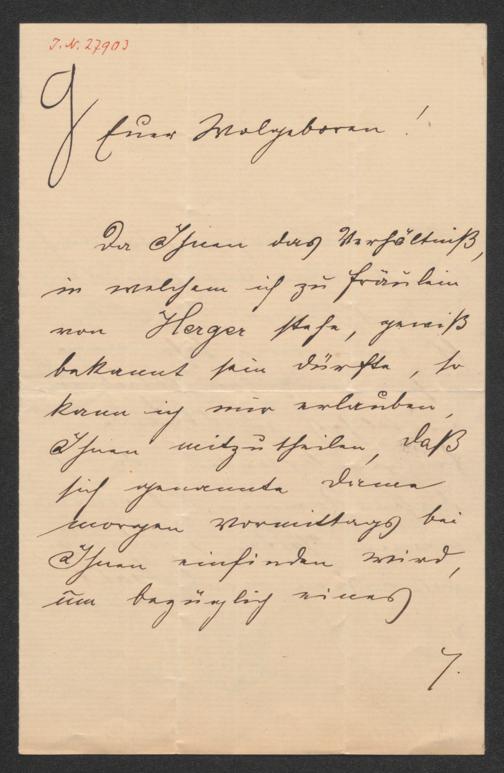 J.N. 27903
Euer Wolgeboren!
Da Ihnen das Verhältniß,
in welchem ich zu Fräulein
von Herger stehe, gewiß
bekannt sein dürfte, so
kann ich mir erlauben,
Ihnen mitzutheilen, daß
sich genannte Dame
morgen Vormittags bei
Ihnen einfinden wird,
um bezüglich eines